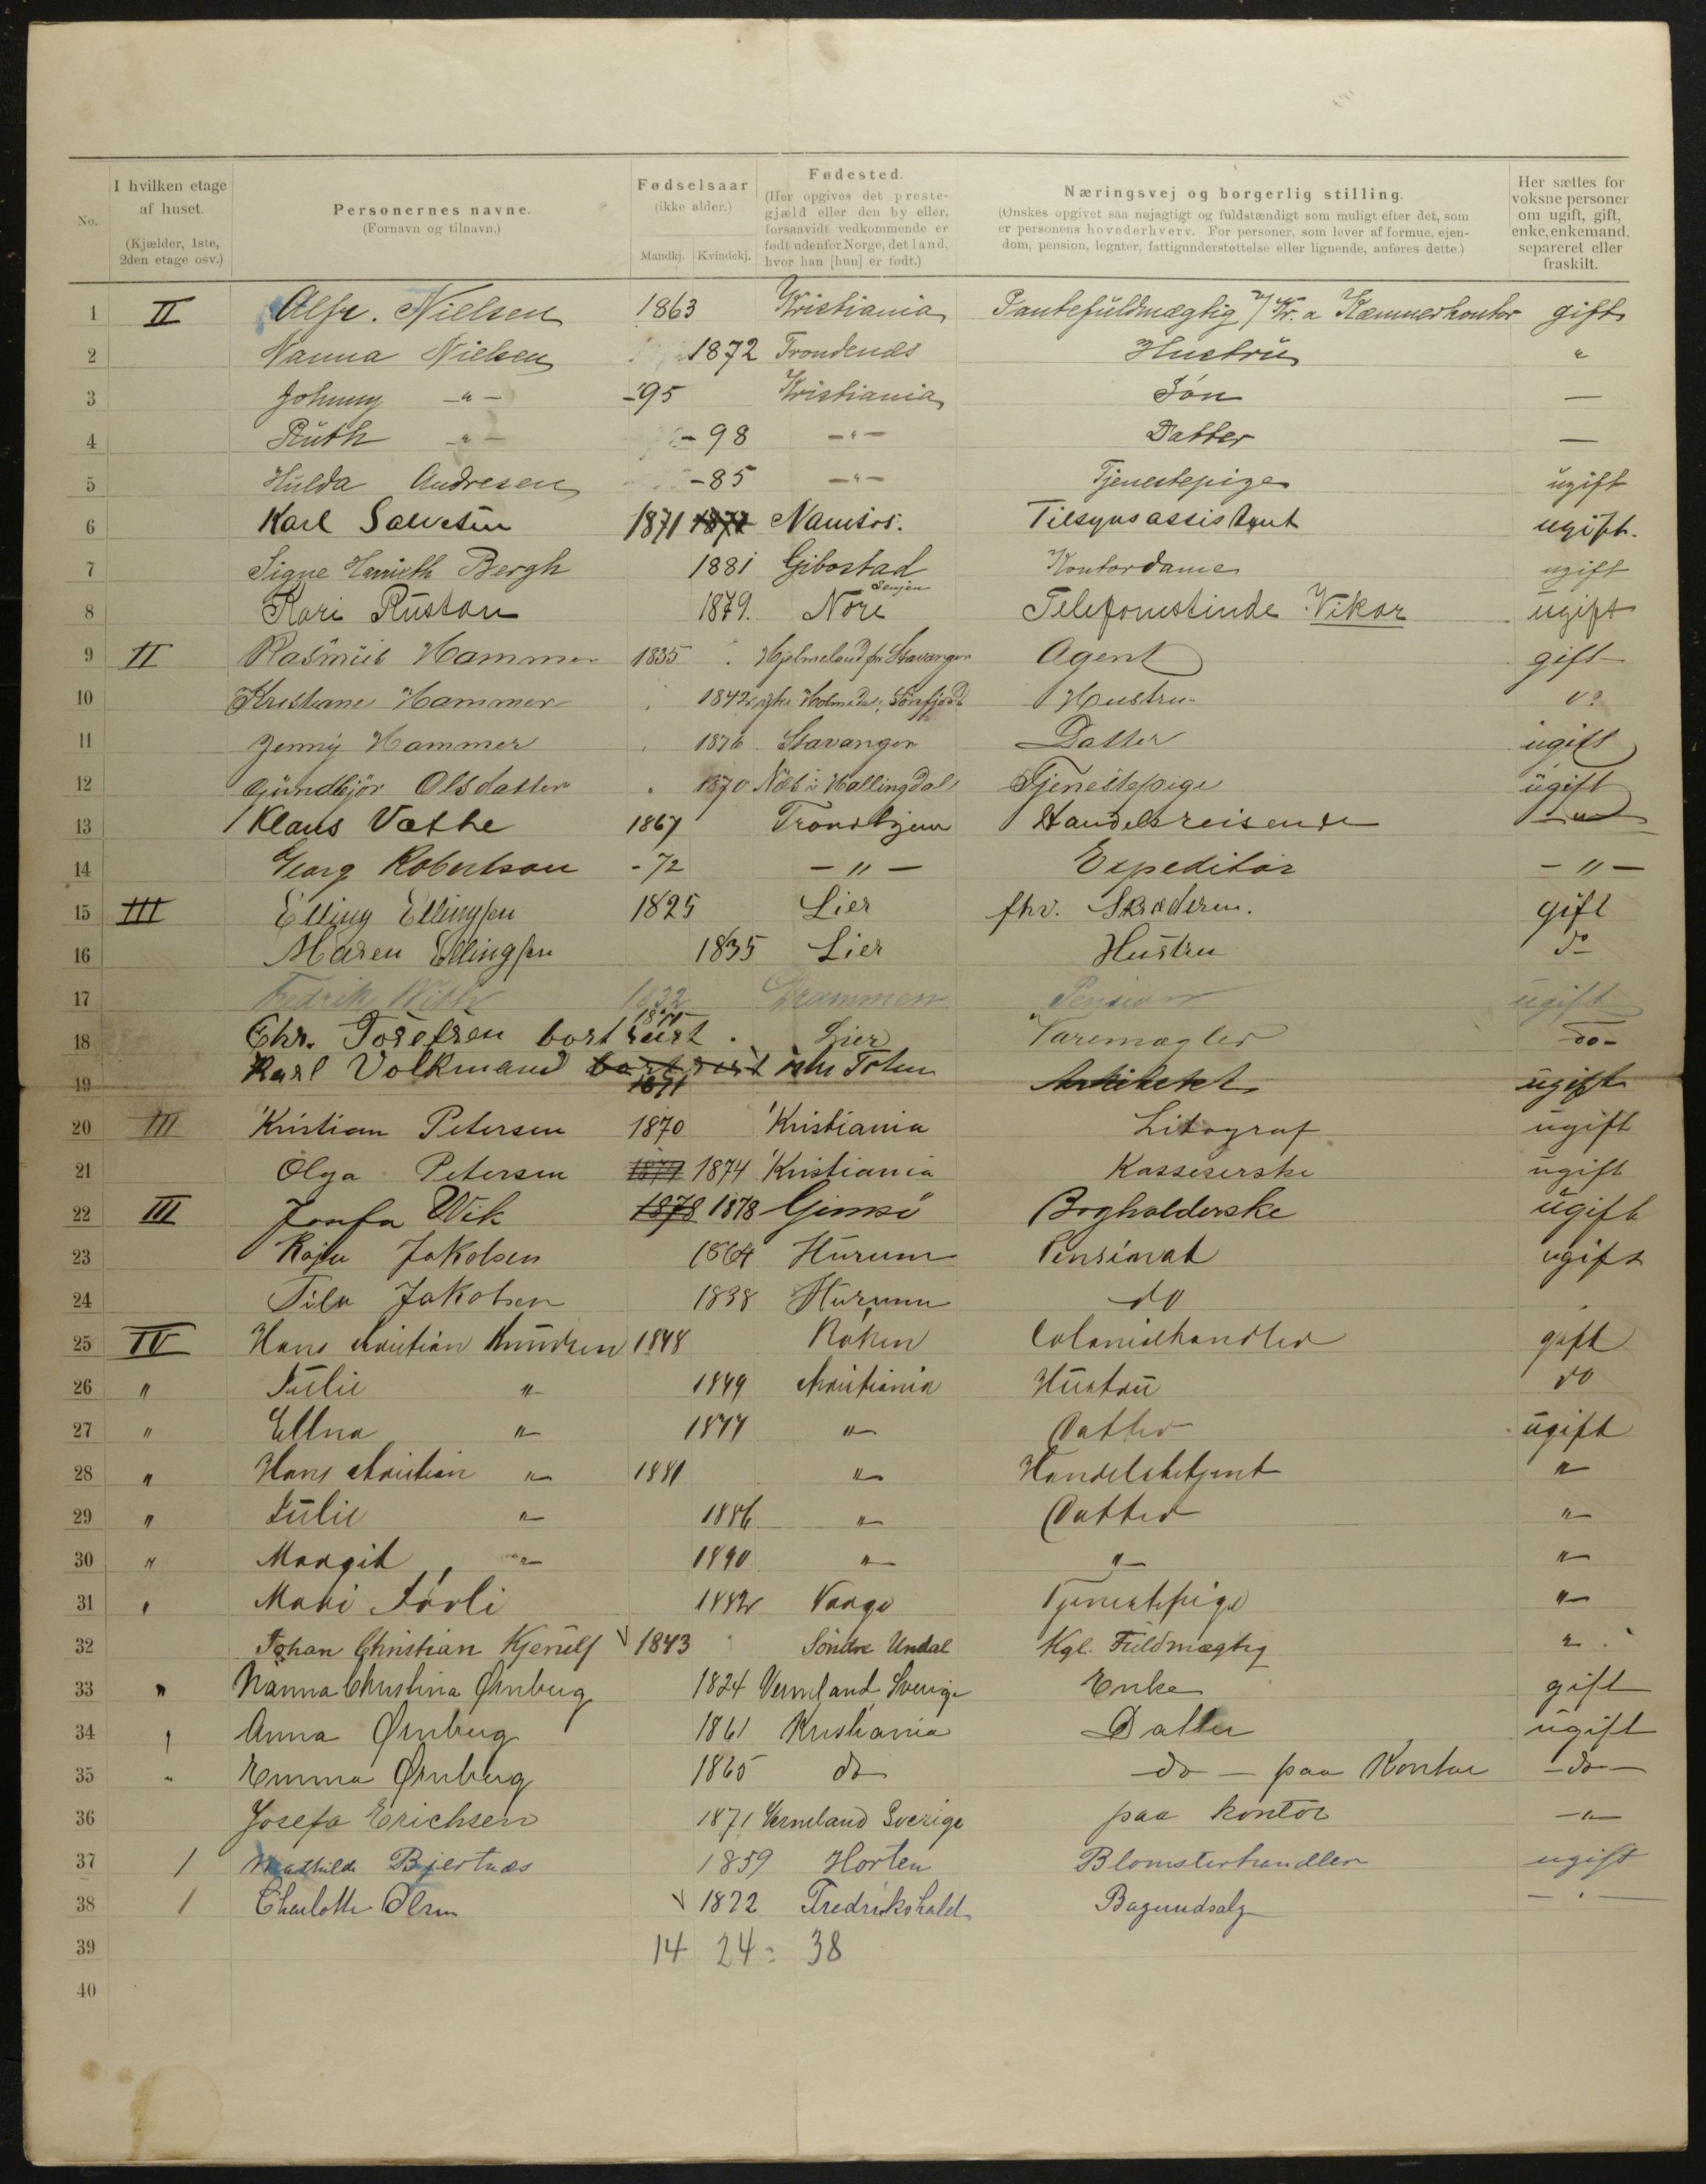 No.
I hvilken etage af huset. (Kjælder, 1ste, 2den etage osv.)
Personernes navne. (Fornavn og tilnavn.)
Fødselsaar (ikke alder.) Mandkj. Kvindekj.
Fødested. (Her opgives det prestegjæld eller den by eller, forsaavidt vedkommende er født udenfor Norge, det land, hvor han [hun] er født.)
Næringsvej og borgerlig stilling. (Ønskes opgivet saa nøjagtigt og fuldstændigt som muligt efter det, som er personens hovederhverv. For personer, som lever af formue, ejendom, pension, legater, fattigunderstøttelse eller lignende, anføres dette.)
Her sættes for voksne personer om ugift, gift, enke, enkemand, separeret eller fraskilt.
1 II Alfr. Nielsen 1863 Kristiania Pantefuldmægtig v/ Kr.a Kæmnerkontor gift
2 Nanna Nielsen 1872 Trondenæs Hustru "
3 Johnny -"- -95 Kristiania Søn —
4 Ruth -"- -98 -"- Datter —
5 Hulda Andresen -85 -"- Tjenestepige ugift
6 Karl Salvesen 1871 Namsos. Tilsynsassistent ugift.
7 Signe Bergh 1881 Gibostad Senjen Kontordame ugift
8 Kari Rustan 1879. Nore Telefonistinde Vikar ugift
9 II Rasmus Hammer 1835 Hjelmeland pr Stavanger Agent gift
10 Kristiane Hammer 1842 Søndfjord Hustru do
11 Jenny Hammer 1876 Stavanger Datter ugift
12 Gundbjør Olsdatter 1870 Næs i Hallingdal Tjenestepige ugift
13 Klaus Vathe 1867 Trondhjem Handelsreisende -"-
14 Georg Robertson -72 -"- Expeditør -"-
15 III Elling Ellingsen 1825 Lier fhv. Skræderm. gift
16 Maren Ellingsen 1835 Lier Hustru do
17 Fredrik With 1832 Drammen Pension ugift
18 Chr. Tosefsen bortreist. Lier Varemægler do-
19 Karl Volkmann bortreist 1871 Toten Arkitekt ugift
20 III Kristian Petersen 1870 Kristiania Litograf ugift
21 Olga Petersen 1874 Kristiania Kassererske ugift
22 III Josefa Wik 1878 1878 Gimsø Bogholderske ugift
23 Kaja Jakobsen 1864 Hurum Pensionat ugift
24 Jakobsen 1838 Hurum do
25 IV Hans Christian Knudsen 1848 Røken Colonialhandler gift
26 " Julie " 1849 Christiania Hustru do
27 " Ellna " 1877 " Datter ugift
28 " Hans Christian " 1881 " Handelsbetjent "
29 " Julie " 1886 " Datter "
30 " Margit " 1890 " " "
31 " Mari 1882 Vaage Tjenestepige "
32 Johan Christian Kjerulf 1843 Søndre Undal Kgl. Fuldmægtig "
33 " Nanna Christina Ørnberg 1824 Vermland Sverige Enke gift
34 " Anna Ørnberg 1861 Kristiania Datter ugift
35 " Emma Ørnberg 1865 do do — paa Kontor -do-
36 Josefa Erichsen 1871 Vermland Sverige paa kontor -"-
37 / Mathilde Bjertnæs 1859 Horten Blomsterhandler ugift
38 / Charlotte Olsen 1822 Fredrikshald -"-
39 14 24 = 38
40